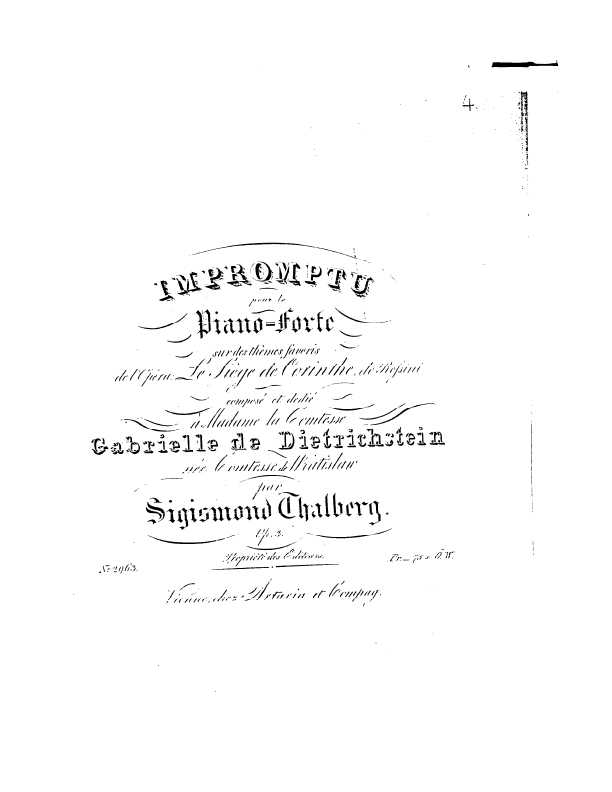 4.
IMPROMPTU
pour le
Piano=Forte
sur des thêmes favoris
de l'Opéra: Le Siège de Corinthe, de Rossini
composé et dedié
à Madame la Comtesse
Gabrielle de Dietrichstein
née Comtesse de Wratislaw
par
Sigismond Thalberg.
Op. 3.
Propriété des Editeurs.
No 2963.
Vienne, chez Artaria et Compag.